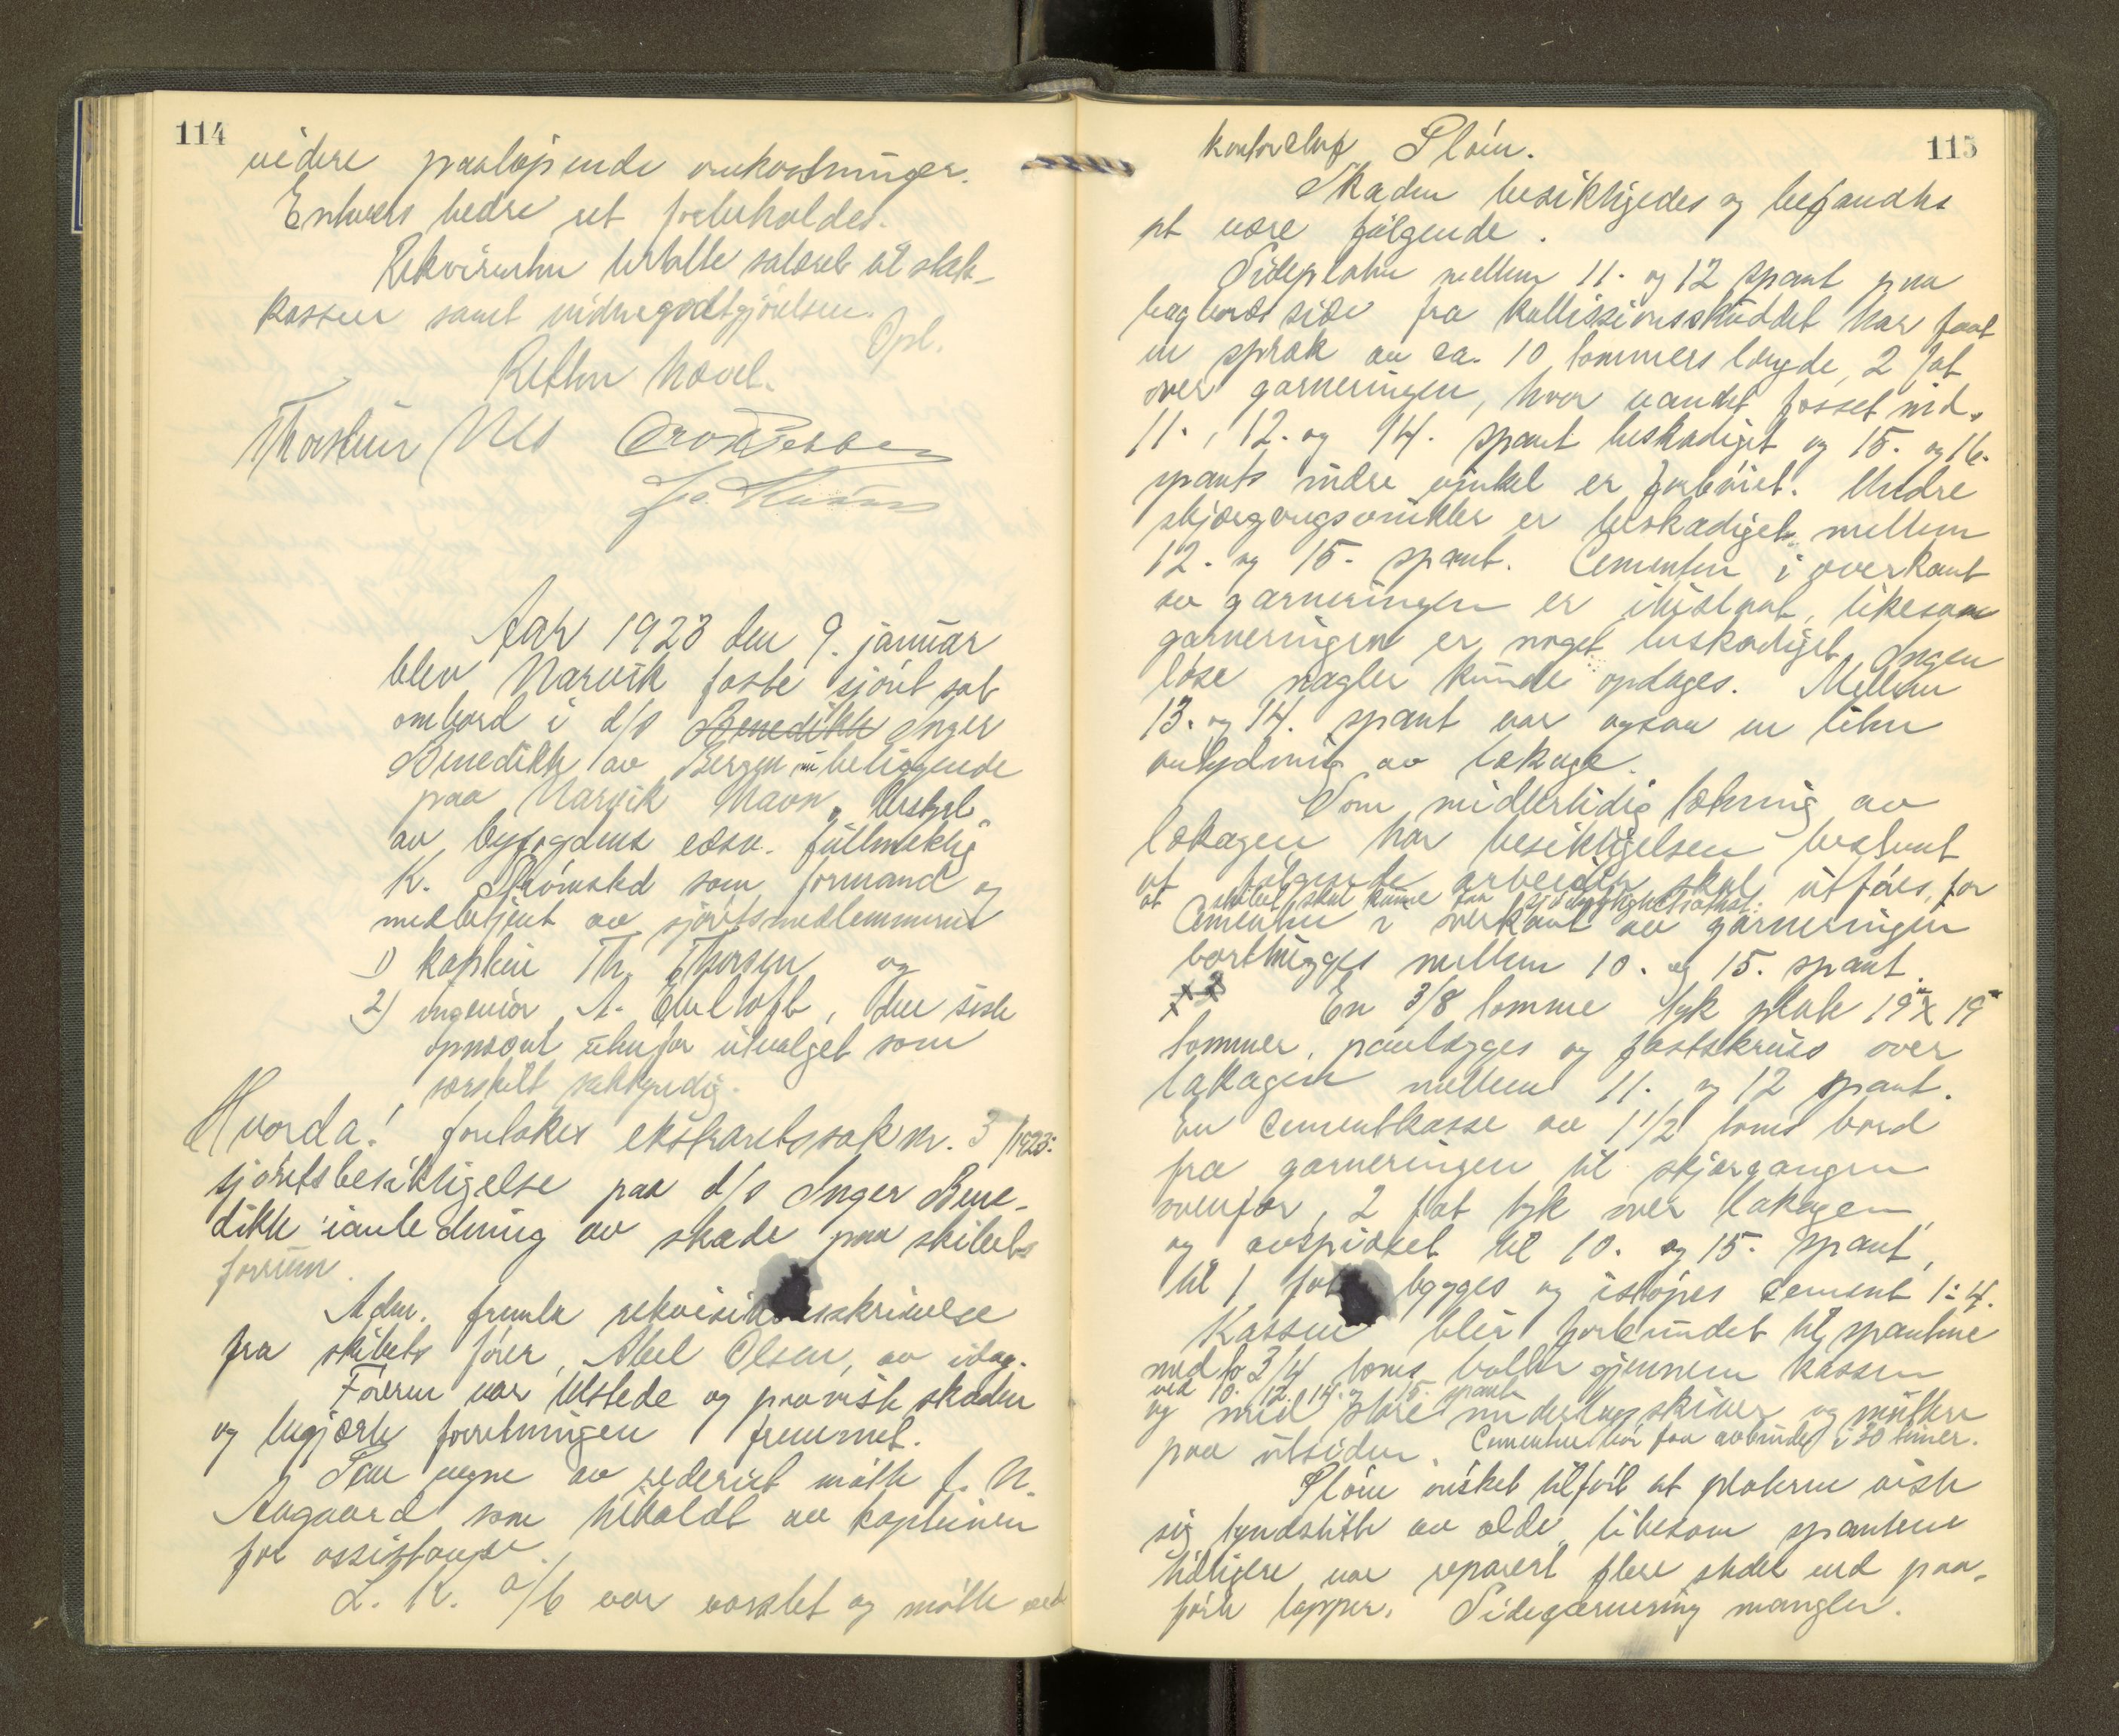 114
videre paaløpende omkostninger.
Enhvers bedre ret forbeholdes.
Rekvirenten betalte salæret til stats-
kassen samt vidnegodtgjörelsen.
Opl.
Retten hævet.
Thorstein Nes
Aar 1923 den 9. januar
blev Narvik faste sjöret sat
ombord i d/s Benedikte Inger
Benedikte av Bergen nu beliggende
paa Narvik havn. Bestyrt
av byfogdens edsv. fullmektig
K. Strömsted som formand og
medbetjent av sjöretsmedlemmerne
1) kaptein Th. Thorsen og
2) ingeniör A. , den siste
opnævnt utenfor utvalget som
særskilt sakkyndig.
Hvorda! foretokes ekstraretssak nr. 3/1923:
sjöretsbesiktigelse paa d/s Inger Bene-
dikte i anledning av skade paa skibets
forrum.
Adm. fremla rekvisitionsskrivelse
fra skibets förer, Abel Olsen, av idag.
Föreren var tilstede og paaviste skaden
og begjærte forretningen fremmet.
Paa vegne av rederiet mötte f. N.
Aagaard som tilkaldt av kapteinen
for assistanse.
L. K. a/b var varslet og mötte ved
115
kontorchef Pløm.
Skaden besiktigedes og befandtes
at være følgende.
Sideplaten mellem 11. og 12 spant paa
bagbords side fra kollissionsskuddet har faat
en spræk av ca. 10 tommers længde, 2 fot
over garneringen, hvor vandet fosset ind.
11., 12. og 14. spant beskadiget og 15. og 16.
spants indre vinkel er forböiet. Undre
skjærgangsvinkler er beskadiget mellem
12. og 15. spant. Cementen i overkant
av garneringen er itustöt, likesom
garneringen er noget beskadiget. Ingen
löse nagler kunde opdages. Mellem
13. og 14. spant var ogsaa en liten
antydning av lækage.
Som midlertidig tætning av
lækagen har besiktigelsen bestemt
at følgende arbeider skal utföres, for
at skibet skal kunne faa sjödyktighetsattest:
Cementen i overkant av garneringen
borthugges mellem 10. og 15. spant.
En 3/8 tomme tyk plate 19" x 19"
tommer, paalægges og fastskrues over
lækagen mellem 11. og 12 spant.
En cementkasse av 1 1/2 toms bord
fra garneringen til skjærgangen
ovenfor, 2 fot tyk over lækagen,
og avspidset til 10. og 15. spant,
til 1 fot bygges og istöpes cement 1:4.
Kassen blir forbundet til spantene
med to 3/4 toms bolter gjennem kassen
ved 10. 12. 14. og 15. spant
og med store underlagsskiver og muttre
paa utsiden. Cementen bör faa avbinde i 30 timer.
Pløm ønsket tilfört at platerne viste
sig tyndslitte av ælde, likesom spantene
tidligere var reparert flere steder ved paa-
förte lapper. Sidegarnering mangler.